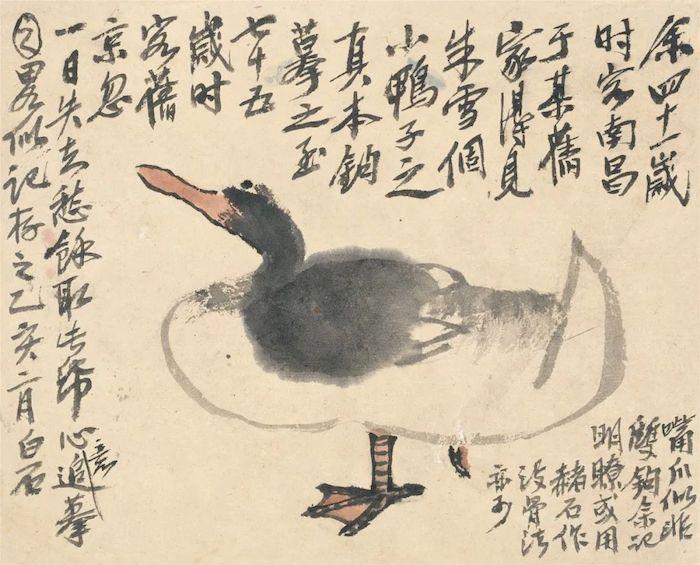 余四十一歲
时客南昌
于某舊
家得見
朱雪個
小鴨子之
真本鈎
摹之至
七十五
歲时
客舊
京忽
一日失去愁餘取此帋心意追摹
自畧似記存之乙亥二月白石
嘴爪似非
雙鈎余記
明瞭或用
赭石作
没骨法
亦可